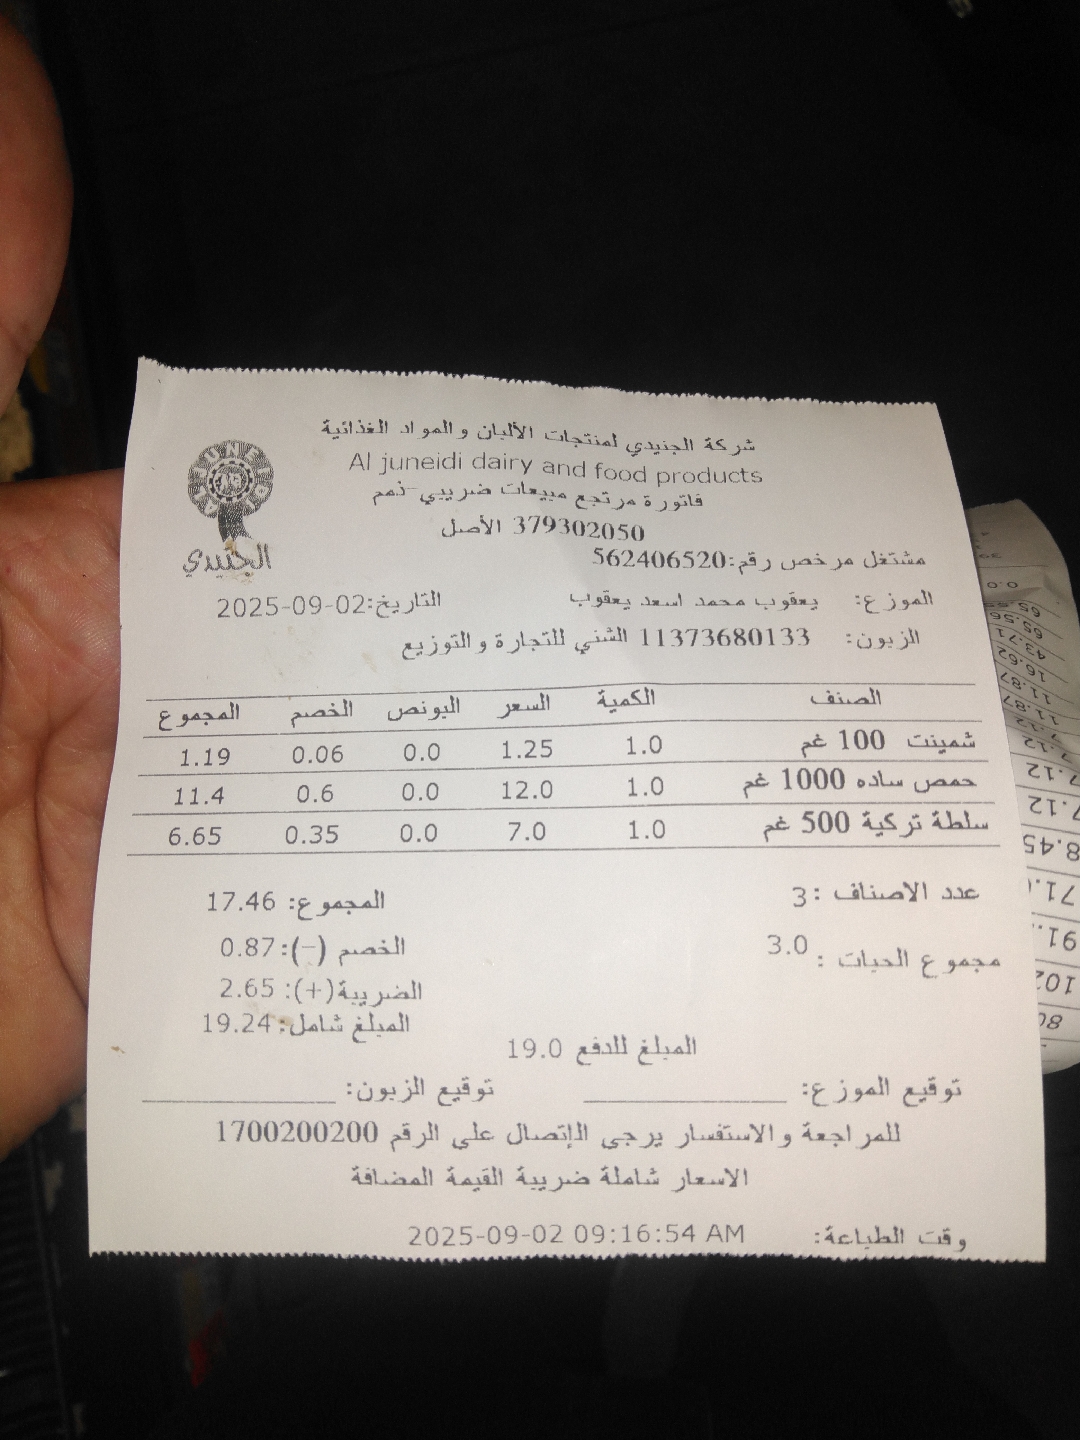 شركة الجنيدي لمنتجات الألبان والمواد الغذائية
Al juneidi dairy and food products
فاتورة مرتجع مبيعات ضريبي-ذمم
379302050 الأصل
مشتغل مرخص رقم:562406520
الموزع: يعقوب محمد اسعد يعقوب التاريخ:2025-09-02
الزبون: 11373680133 الشني للتجارة والتوزيع
الجنيدي
الصنف الكمية السعر البونص الخصم المجموع
شمينت 100 غم 1.0 1.25 0.0 0.06 1.19
حمص ساده 1000 غم 1.0 12.0 0.0 0.6 11.4
سلطة تركية 500 غم 1.0 7.0 0.0 0.35 6.65
عدد الاصناف :3 المجموع: 17.46
مجموع الحبات : 3.0 الخصم (-):0.87
الضريبة(+): 2.65
المبلغ شامل: 19.24
المبلغ للدفع 19.0
توقيع الموزع: توقيع الزبون:
للمراجعة والاستفسار يرجى الإتصال على الرقم 1700200200
الاسعار شاملة ضريبة القيمة المضافة
وقت الطباعة: 2025-09-02 09:16:54 AM
65.56
43.71
16.62
11.87
11.87
7.12
7.12
8.45